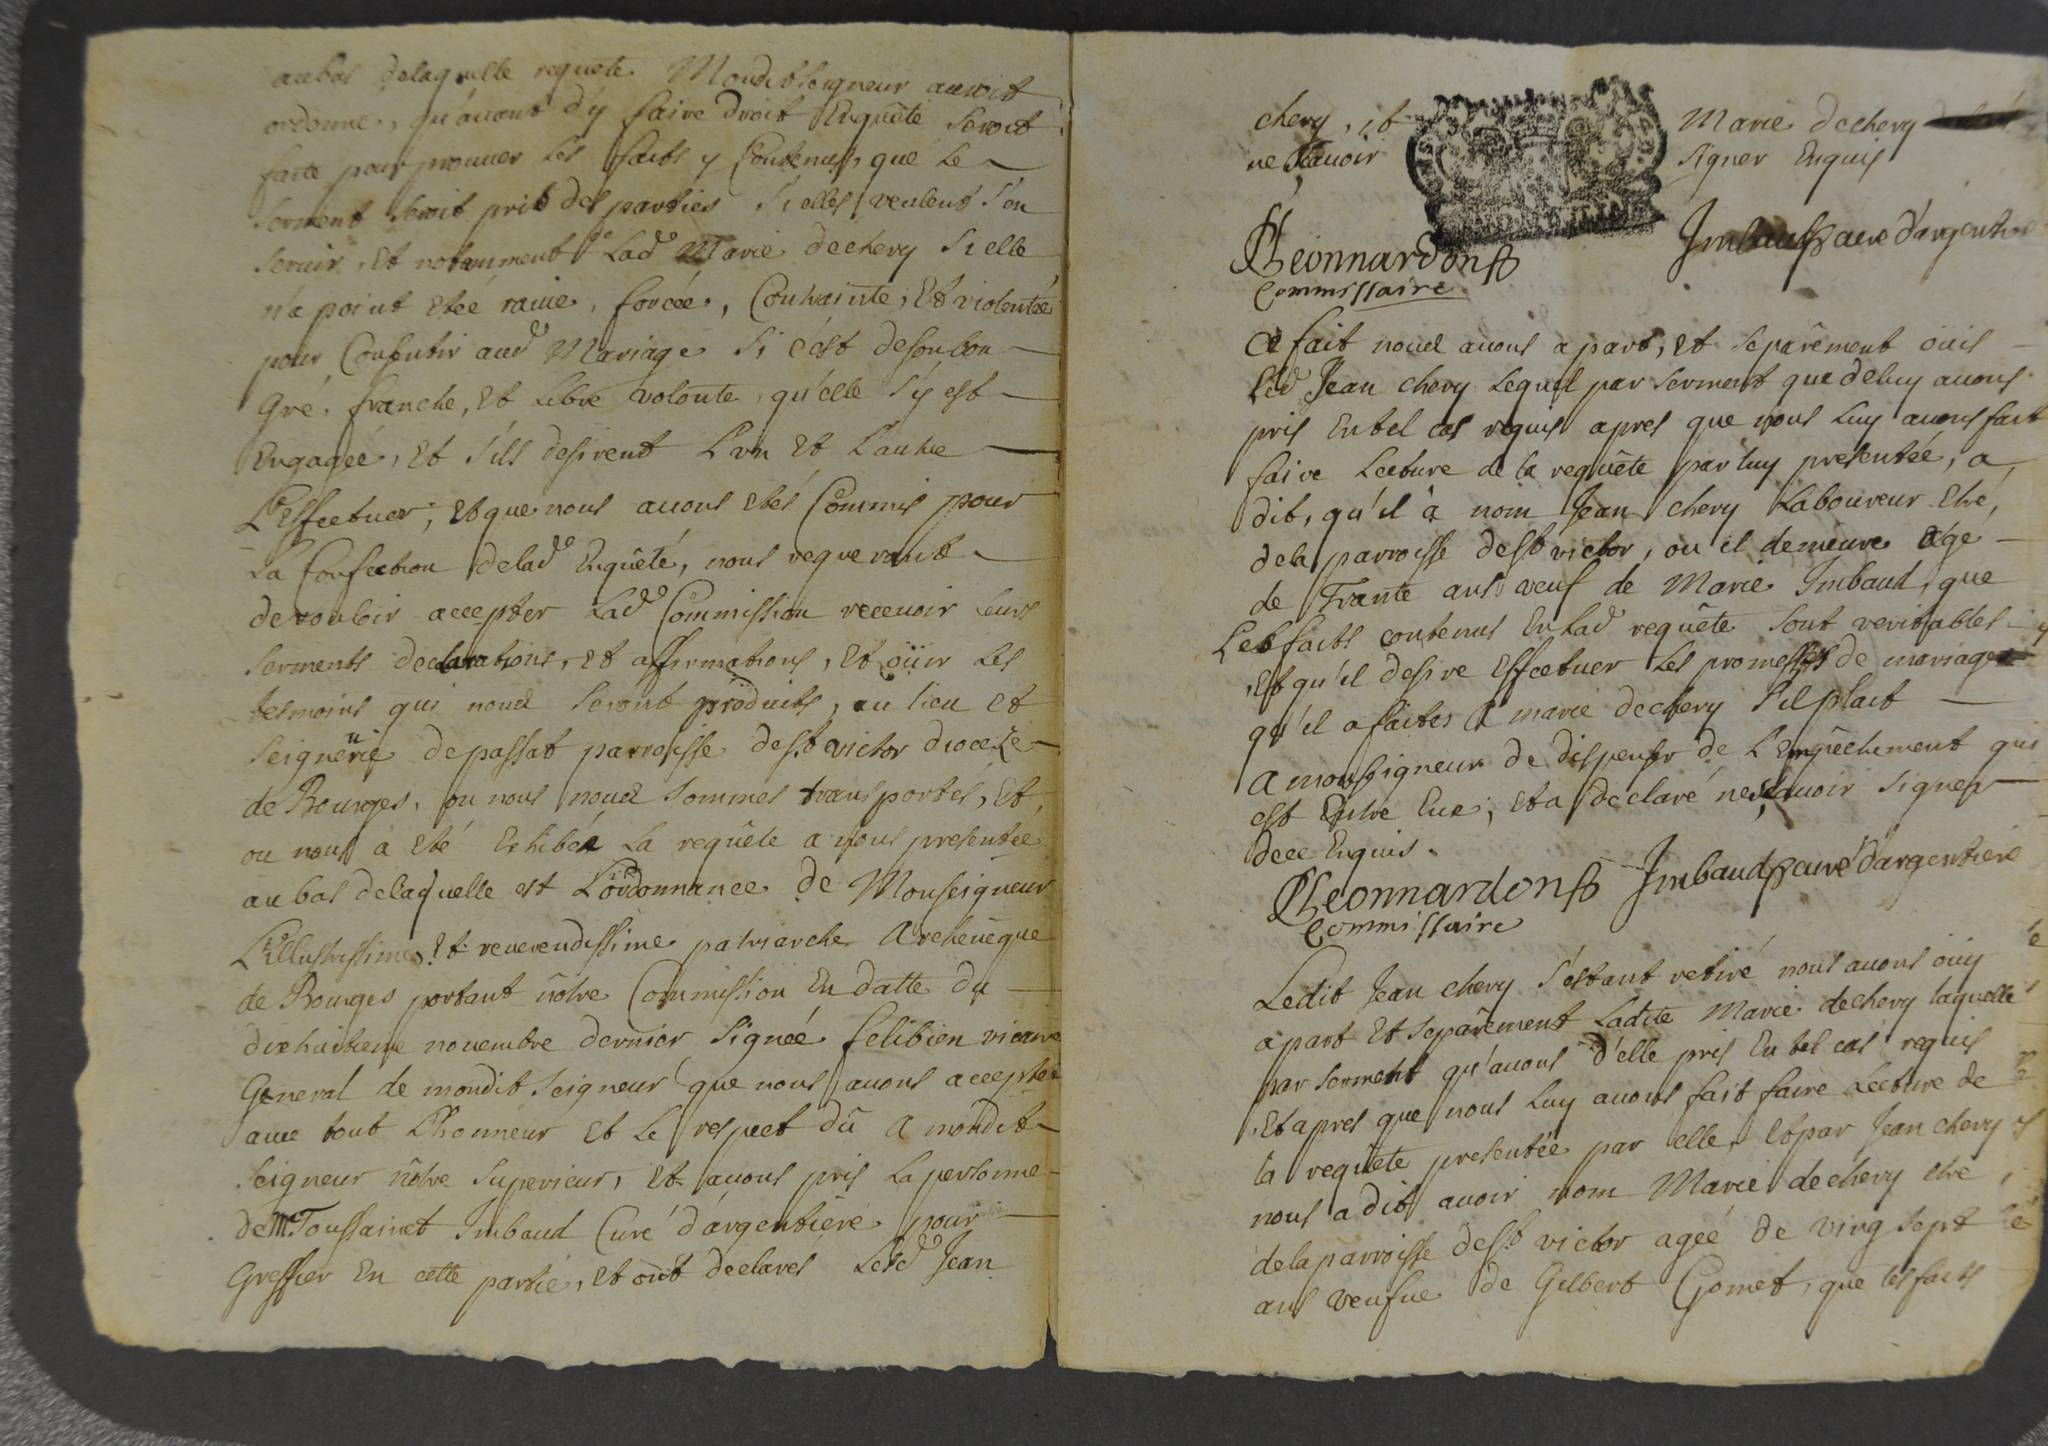 au bas de laquelle requete Mondit seigneur auroit
ordonné, qu'auant d'y faire droit Enquête seroit
faite pour prouuer Les faits y Contenus, que Le
serment seroit pris des parties si elles veulent s'en
seruir, Et notamment Lad.e Marie dechery si elle
n'a point Etéé rauie, forcéé, Contrainte, Et violentéé
pour Consentir aud Mariage si c'est de son bon
Gré, franche, Et Libre volonte, qu'elle s'y est
Engagéé, Et s'ils desirent L'vn Et L'autre
L'Effectuer; Et que nous auons etés Commis pour
La Confection de lad.e Enquêté, nous requerant
de vouloir accepter Lad.e Commission receuoir Leurs
serments declarations, et affirmations, Et oüir Les
tesmoins qui nous seront produits, au lieu et
seigneurie de passat parroisse de st victor dioceze
de Bourges, ou nous nous sommes transportés, Et,
ou nous a eté Exhibéé La requête a nous presentéé
au bas delaquelle est L'ordonnance de Monseigneur
L'illustrissime Et reuerendissime patriarche Archeuêque
de Bourges portant nôtre Commission En datte du
dixhuitieme nouembre dernier signéé felibien vicaire
General de mondit seigneur que nous auons acceptéé
auec tout L'honneur et Le respect dû a mondit
seigneur nôtre superieur, Et auons pris La personne
de Mre Toussainct Imbaud Curé d'argentiere pour
Greffier En cette partie, Et ont declarés Lesd Jean
chery, et Marie dechery
ne sçauoir signer Enquis
Leonnardon
Commissaire
Imbaud curé d'argentiere
Ce fait nous auons a part, et separêment oüis
Led Jean chery Lequel par serment que deluy auons
pris En tel cas requis apres que nous Luy auons fait
faire Lecture de la requête par luy presentéé, a
dit, qu'il à nom Jean chery Laboureur Etre,
de la parroisse de st victor, ou il demeure âgé
de Trante ans veuf de Marie Imbaud, que
Les faits contenus En Lad requête sont veritables
Et qu'il desire Effectuer Les promesses de mariage
qu'il a faites A marie dechery s'il plait
A monseigneur de dispenser de L'Empêchement qui
est Entre Eux, Et a declaré ne sçauoir signer
de ce Enquis.
Leonnardon
Commissaire
Imbaud curé d'argentiere
Ledit Jean chery s'estant retiré nous auons oüy
apart Et separêment Ladite Marie dechery laquelle
par serment qu'auons d'elle pris En tel cas requis
Et apres que nous Luy auons fait faire Lecture de
la requête presentéé par elle, Et par Jean chery
nous a dit auoir nom Marie dechery etre
de la parroisse de st victor agéé de ving sept
ans veufue de Gilbert Gomet, que les faits